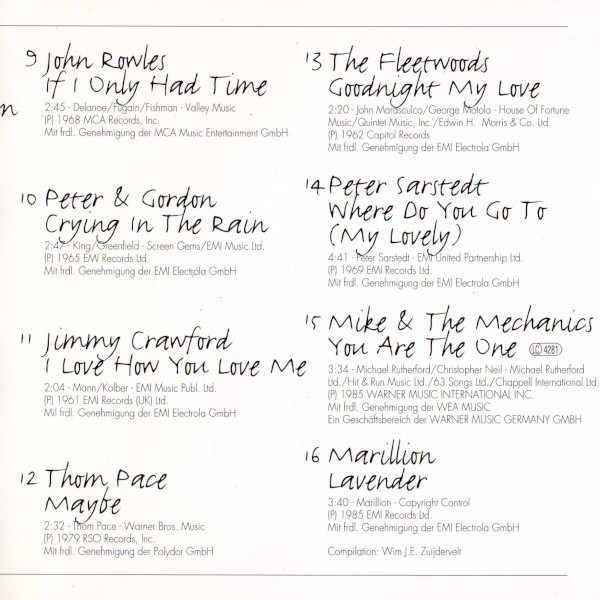 n
9 John Rowles
If I Only Had Time
2:45 - Delanoe/Fugain/Fishman - Valley Music
(P) 1968 MCA Records, Inc.
Mit frdl. Genehmigung der MCA Music Entertainment GmbH
10 Peter & Gordon
Crying In The Rain
2:47 - King/Greenfield - Screen Gems/EMI Music Ltd.
(P) 1965 EMI Records Ltd.
Mit frdl. Genehmigung der EMI Electrola GmbH
11 Jimmy Crawford
I Love How You Love Me
2:04 - Mann/Kolber - EMI Music Publ. Ltd.
(P) 1961 EMI Records (UK) Ltd.
Mil frdl. Genehmigung der EMI Electrola GmbH
12 Thom Pace
Maybe
2:32 - Thom Pace - Warner Bros. Music
(P) 1979 RSO Records, Inc.
Mit frdl. Genehmigung der Polydor GmbH
13 The Fleetwoods
Goodnight My Love
2:20 - John Marasculco/George Motola - House Of Fortune
Music/Quintet Music, Inc./Edwin H. Morris & Co. Ltd.
(P) 1962 Capitol Records
Mit frdl. Genehmigung der EMI Electrola GmbH
14 Peter Sarstedt
Where Do You Go To
(My Lovely)
4:41 - Peter Sarstedt - EMI United Partnership Ltd.
(P) 1969 EMI Records Ltd.
Mit frdl. Genehmigung der EMI Electrola GmbH
15 Mike & The Mechanics
You Are The One LC 4281
3:34 - Michael Rutherford/Christopher Neil - Michael Rutherford
Ltd./Hit & Run Music Ltd./63 Songs Ltd./Chappell International Ltd.
(P) 1985 WARNER MUSIC INTERNATIONAL INC.
Mit frdl. Genehmigung der WEA MUSIC
Ein Geschäftsbereich der WARNER MUSIC GERMANY GMBH
16 Marillion
Lavender
3:40 - Marillion - Copyright Control
(P) 1985 EMI Records Ltd.
Mit frdl. Genehmigung der EMI Electrola GmbH
Compilation: Wim J.E. Zuijdervelt